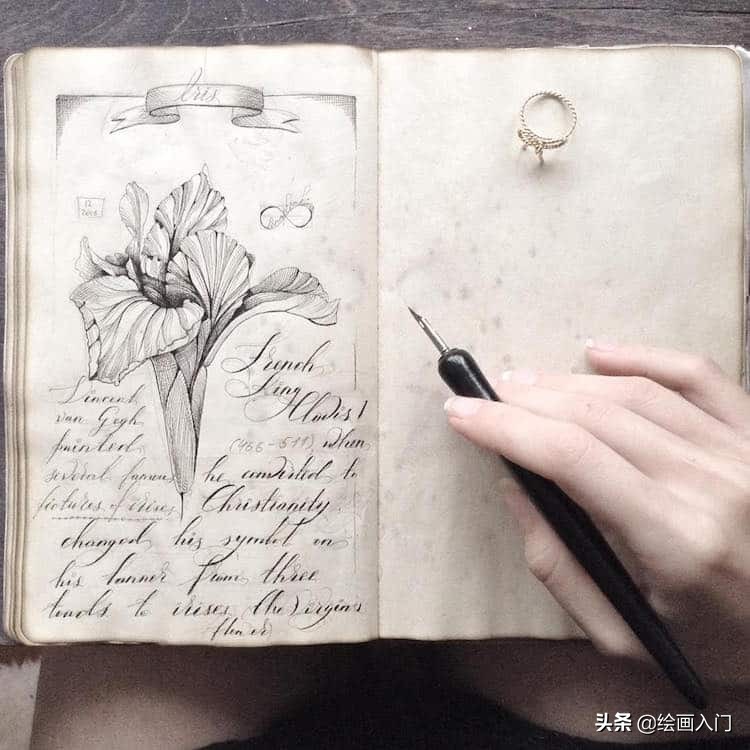 Iris
12
Vincent
van Gogh
painted
several famous
pictures of irises
French
King
Clovis I
(466-511), when
he converted to
Christianity,
changed his symbol on
his banner from three
toads to irises, the Virgin's
flower
头条 @绘画入门